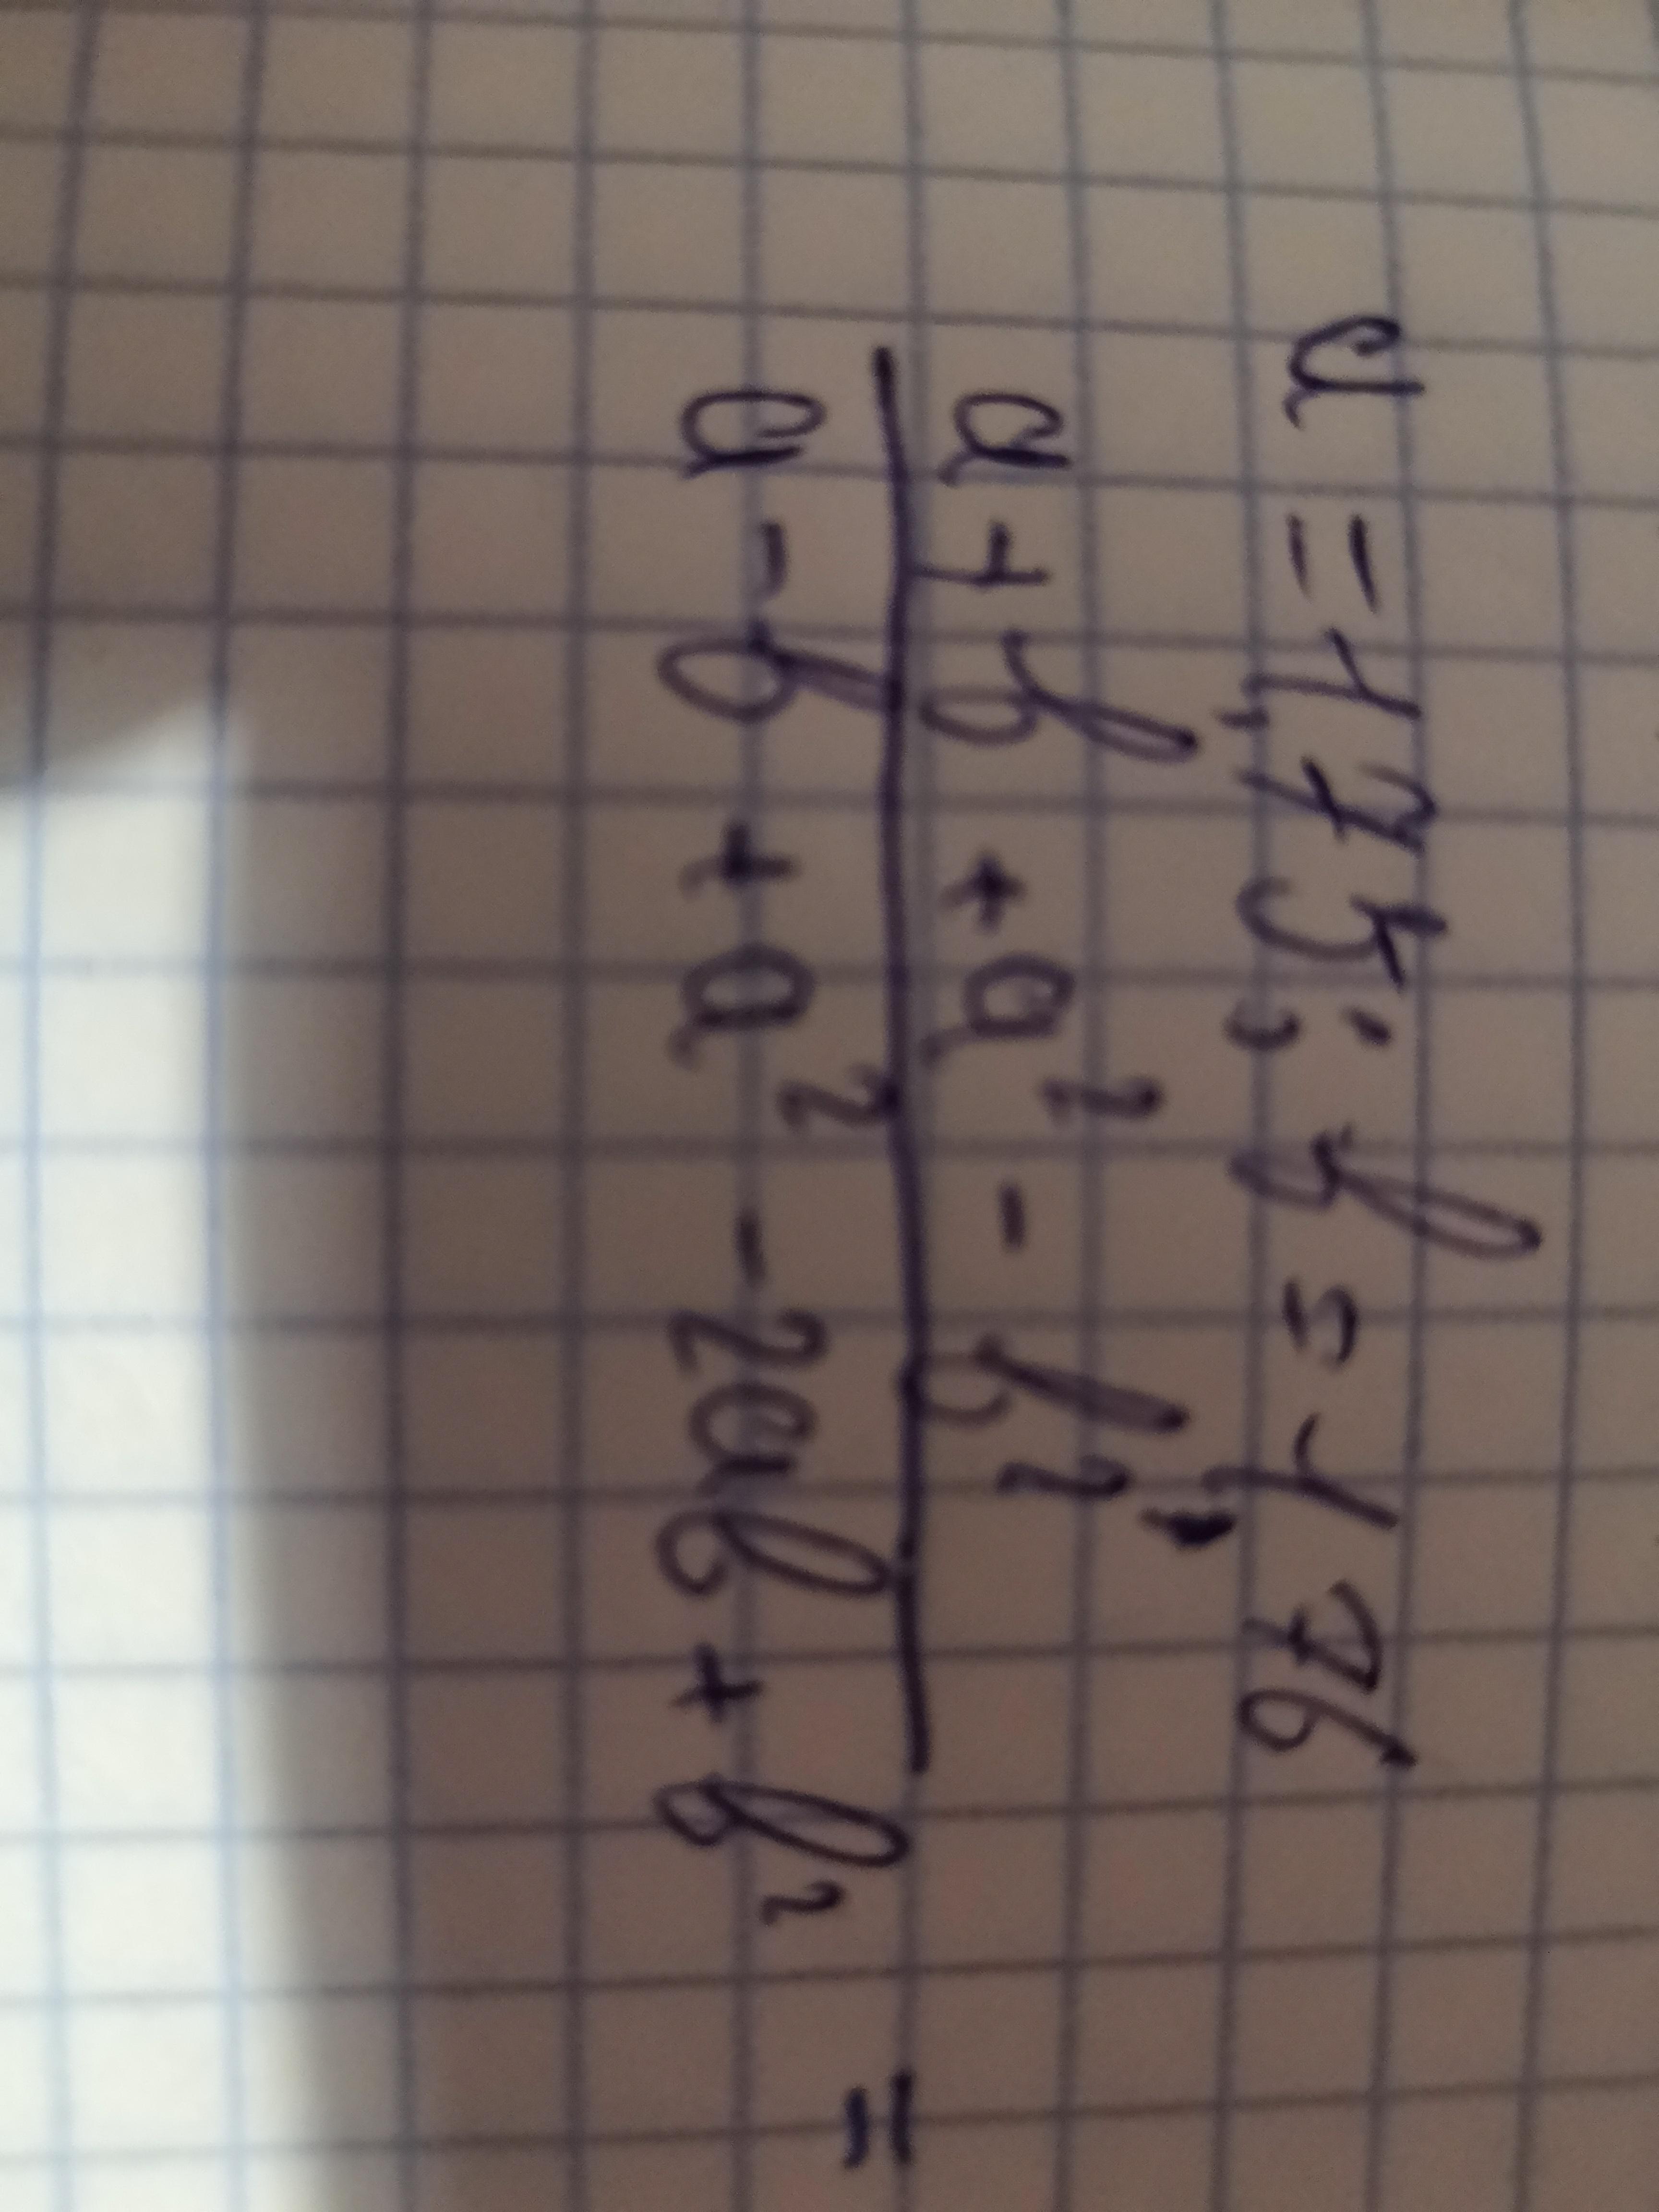 a = 1,75; b = 1,76
a + b + a² - b²
a - b + a² - 2ab + b² =